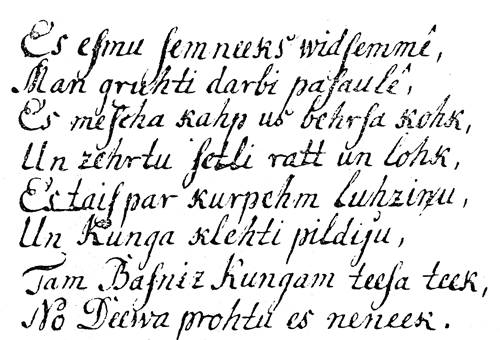 Es eſmu ſemneeks widſemmê,
Man gruhti darbi paſaulê,
Es meſcha kahp us behrſa kohk,
Un zehrtu ſetli ratt un lohk,
Es taiſ par kurpehm luhziņu,
Un Kunga klehti pildiju,
Tam Baſniz Kungam teeſa teek,
No Deewa prohtu es neneek.